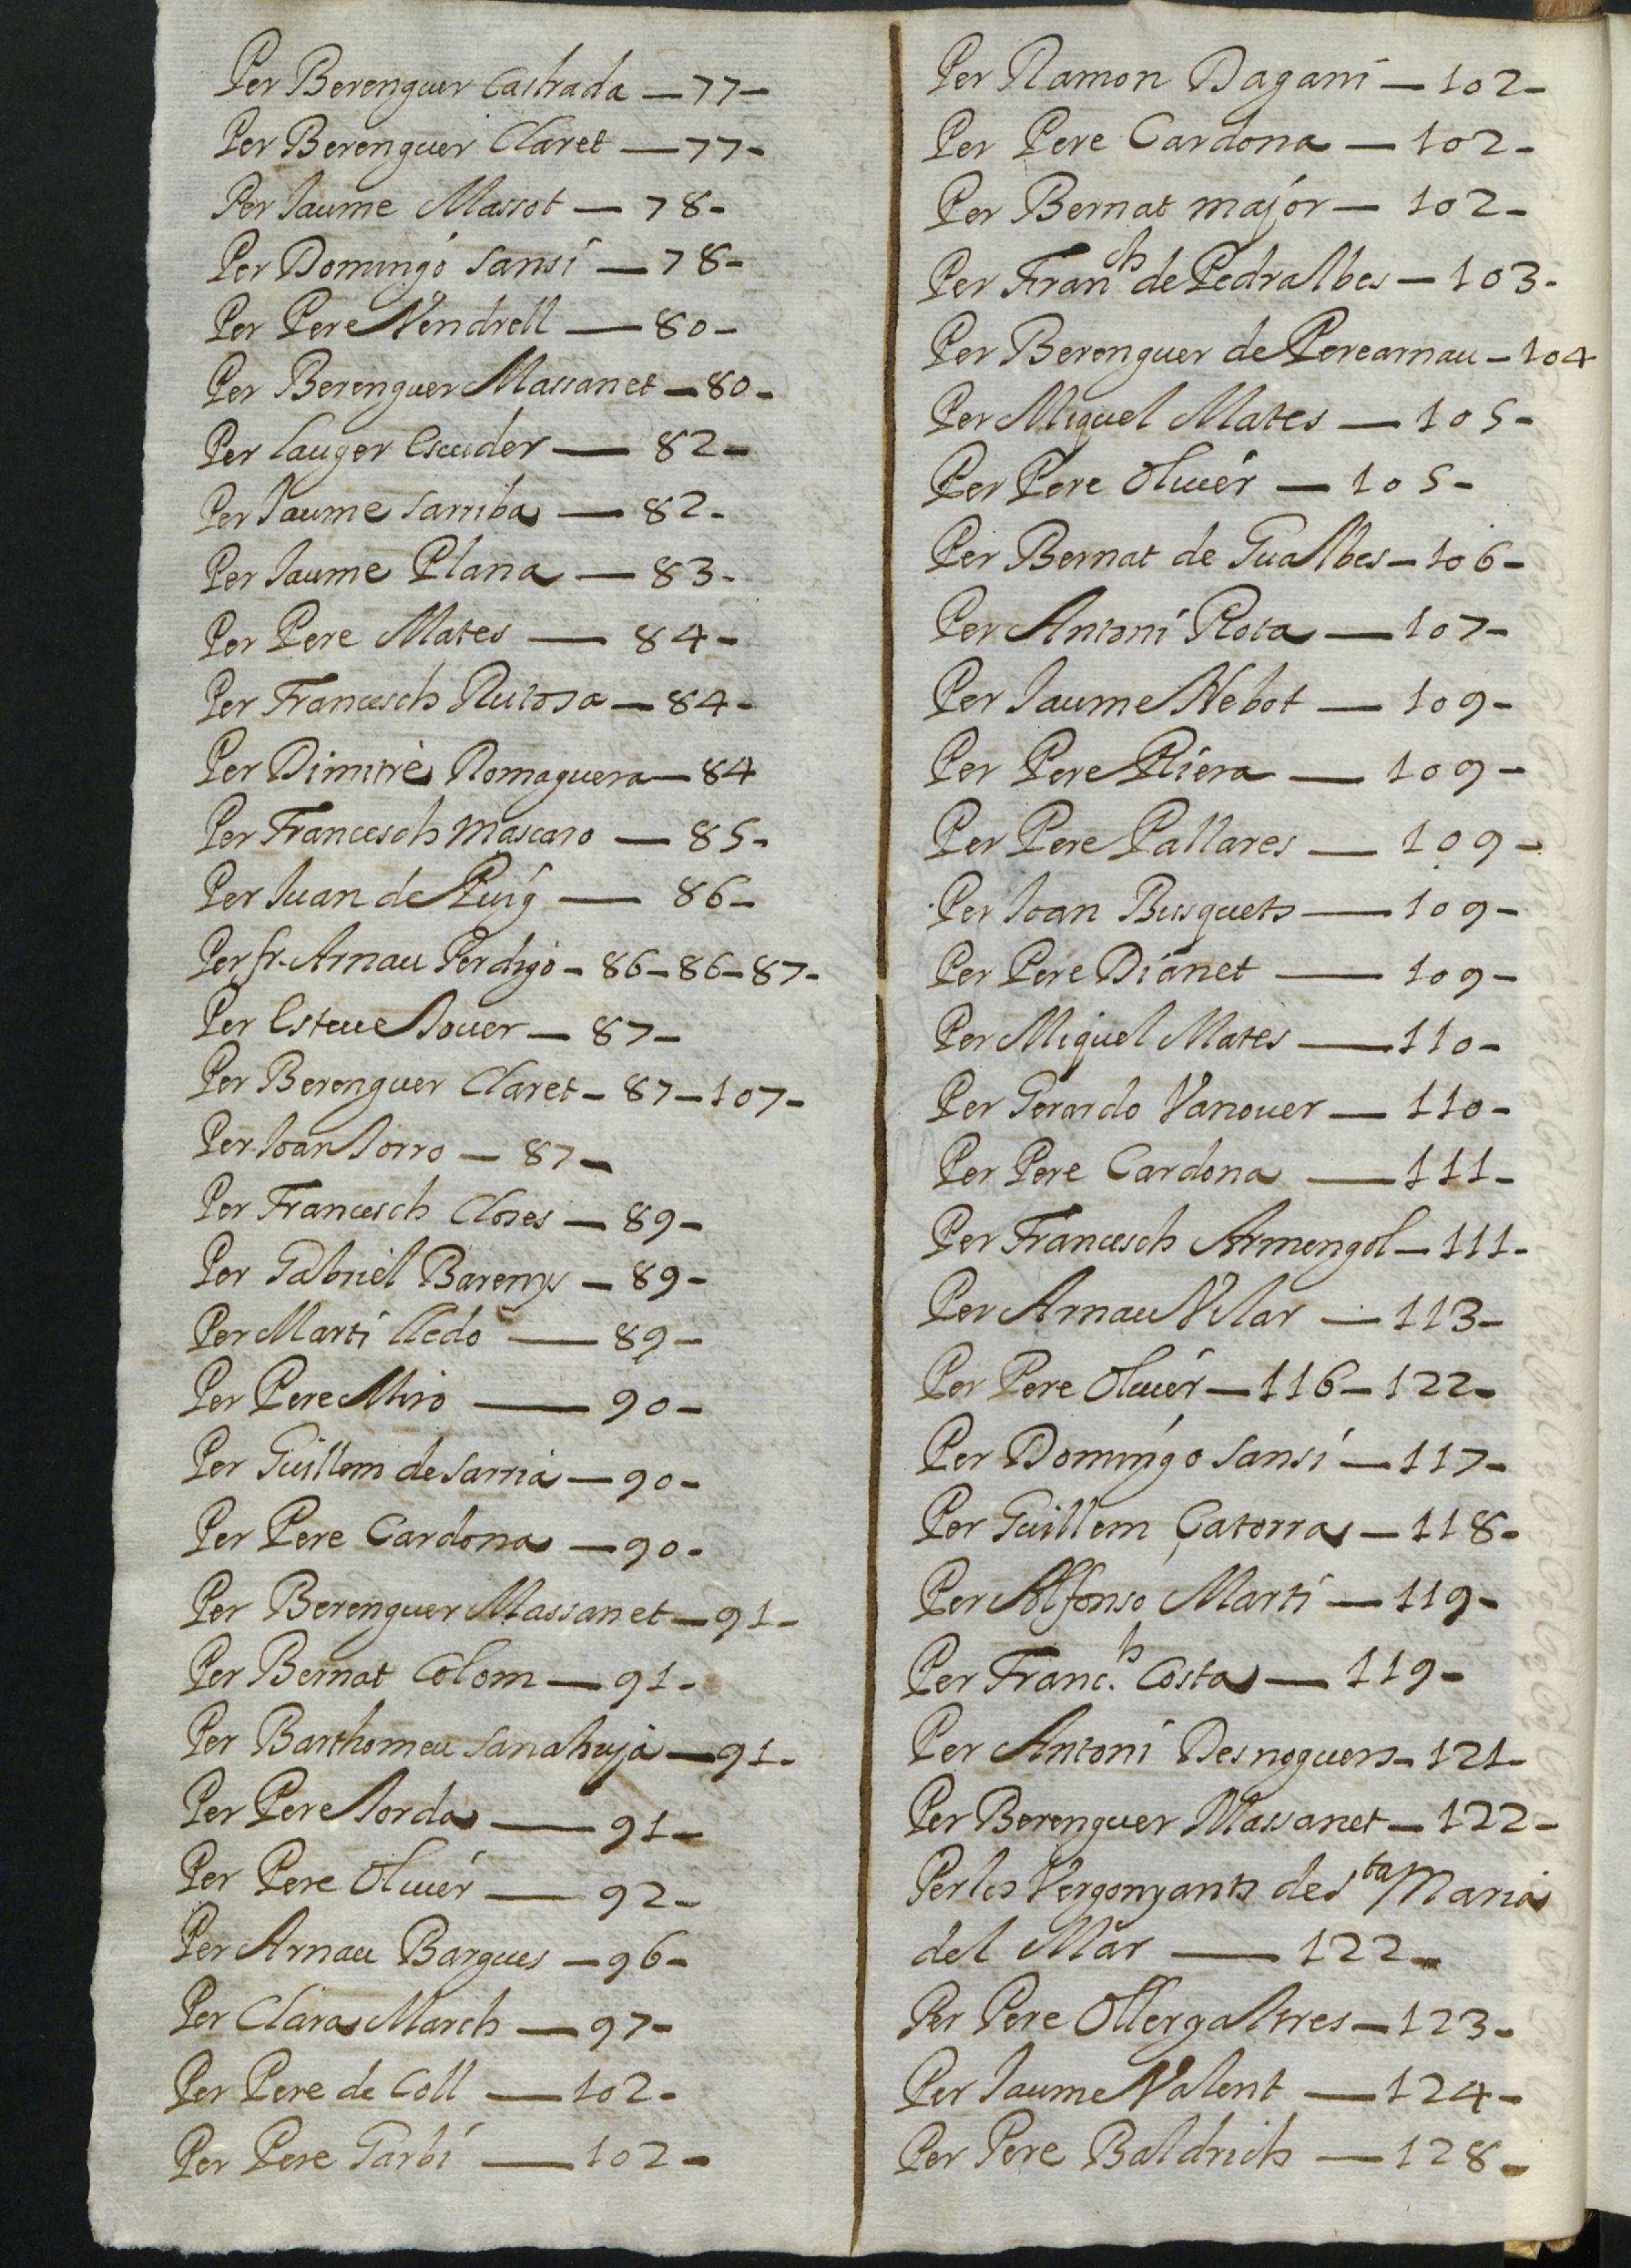 Per Berenguer Castrada — 77 —
Per Berenguer Claret — 77 -
Per Jaume Massot — 78 -
Per Domingó Sansi — 78 -
Per Pere Vendrell — 80 -
Per Berenguer Massanet — 80 -
Per Lauger Escuder — 82 -
Per Jaume Sarriba — 82 -
Per Jaume Plana — 83 -
Per Pere Mates — 84 -
Per Francesch — 84 -
Per Dimitre Romaguera — 84
Per Francesch Mascaro — 85 -
Per Juan de Puig — 86 -
Per fr. Arnau Perdigo - 86 - 86 - 87 -
Per Esteve Jover — 87 -
Per Berenguer Claret - 87 - 107 -
Per Joan Jorro — 87 -
Per Francesch Closes — 89 -
Per Gabriel Barenys — 89 -
Per Marti lledo — 89 -
Per Pere Miro — 90 -
Per Guillem de Sarria — 90 -
Per Pere Cardona — 90 -
Per Berenguer Massanet — 91 -
Per Bernat Colom — 91 -
Per Barthomeu Sanahuja — 91 -
Per Pere Jorda — 91 -
Per Pere Oliuér — 92 -
Per Arnau Bargues — 96 -
Per Clara March — 97 -
Per Pere de Coll — 102 -
Per Pere Garbi — 102 -
Per Ramon Dagani — 102 -
Per Pere Cardona — 102 -
Per Bernat major — 102 -
Per Fran.ch de Pedralbes — 103 -
Per Berenguer de Perearnau — 104
Per Miquel Mates — 105 -
Per Pere Oliuér — 105 -
Per Bernat de Gualbes — 106 -
Per Antoni Rota — 107 -
Per Jaume Nebot — 109 -
Per Pere Riera — 109 -
Per Pere Pallares — 109 -
Per Joan Busquets — 109 -
Per Pere Dianet — 109 -
Per Miquel Mates — 110 -
Per Gerardo Vanover — 110 -
Per Pere Cardona — 111 -
Per Francesch Armengol — 111 -
Per Arnau Vilar — 113 -
Per Pere Oliuér — 116 - 122 -
Per Domingo Sansi — 117 -
Per Guillem Çatorra — 118 -
Per Alfonso Marti — 119 -
Per Franc.h Costa — 119 -
Per Antoni Desnoguers - 121 -
Per Berenguer Massanet — 122 -
Per les Vergonyants de Sta Maria
del Mar — 122 -
Per Pere Oller y altres — 123 -
Per Jaume Valent — 124 -
Per Pere Baldrich — 128 -